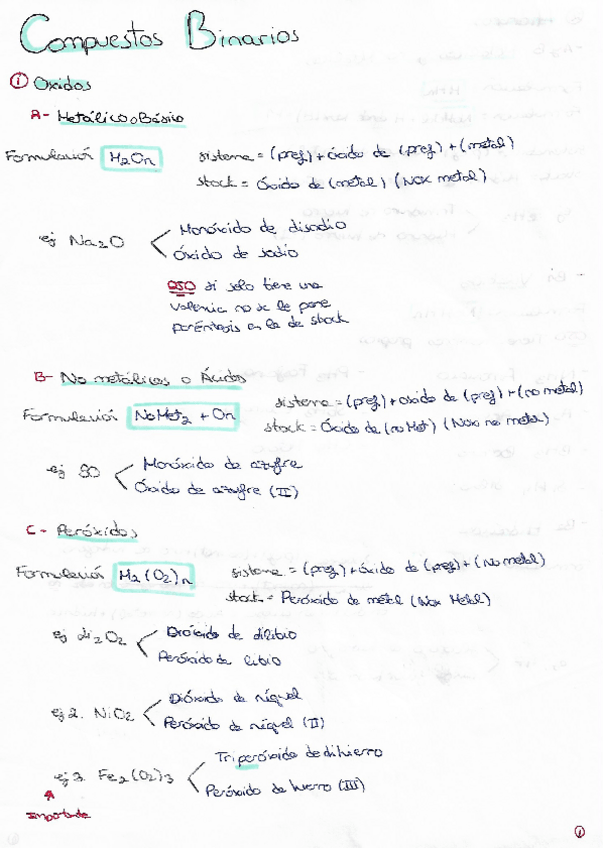 Compuestos Binarios
① Oxidos
A- Metálico o Básico
Formulación M2On sistema = (pref) + óxido de (pref) + (metal)
stock = Óxido de (metal) (Nox metal)
ej Na2O Monóxido de disodio
Óxido de sodio
OJO si solo tiene una
valencia no se le pone
paréntesis en la de stock
B- No metálicos o Ácidos
Formulación NoMet2 + On sistema = (pref) + oxido de (pref) + (no metal)
stock = Óxido de (no Met) (Nox no metal)
ej SO Monóxido de azufre
Óxido de azufre (II)
C- Peróxidos
Formulación M2(O2)n sistema = (pref) + óxido de (pref) + (No metal)
stock = Peróxido de metal (Nox Metal)
ej Li2O2 Dióxido de dilitio
Peróxido de litio
ej 2. NiO2 Dióxido de níquel
Peróxido de níquel (II)
ej 3. Fe2(O2)3 Triperóxido de dihierro
Peróxido de hierro (III)
Importante
①